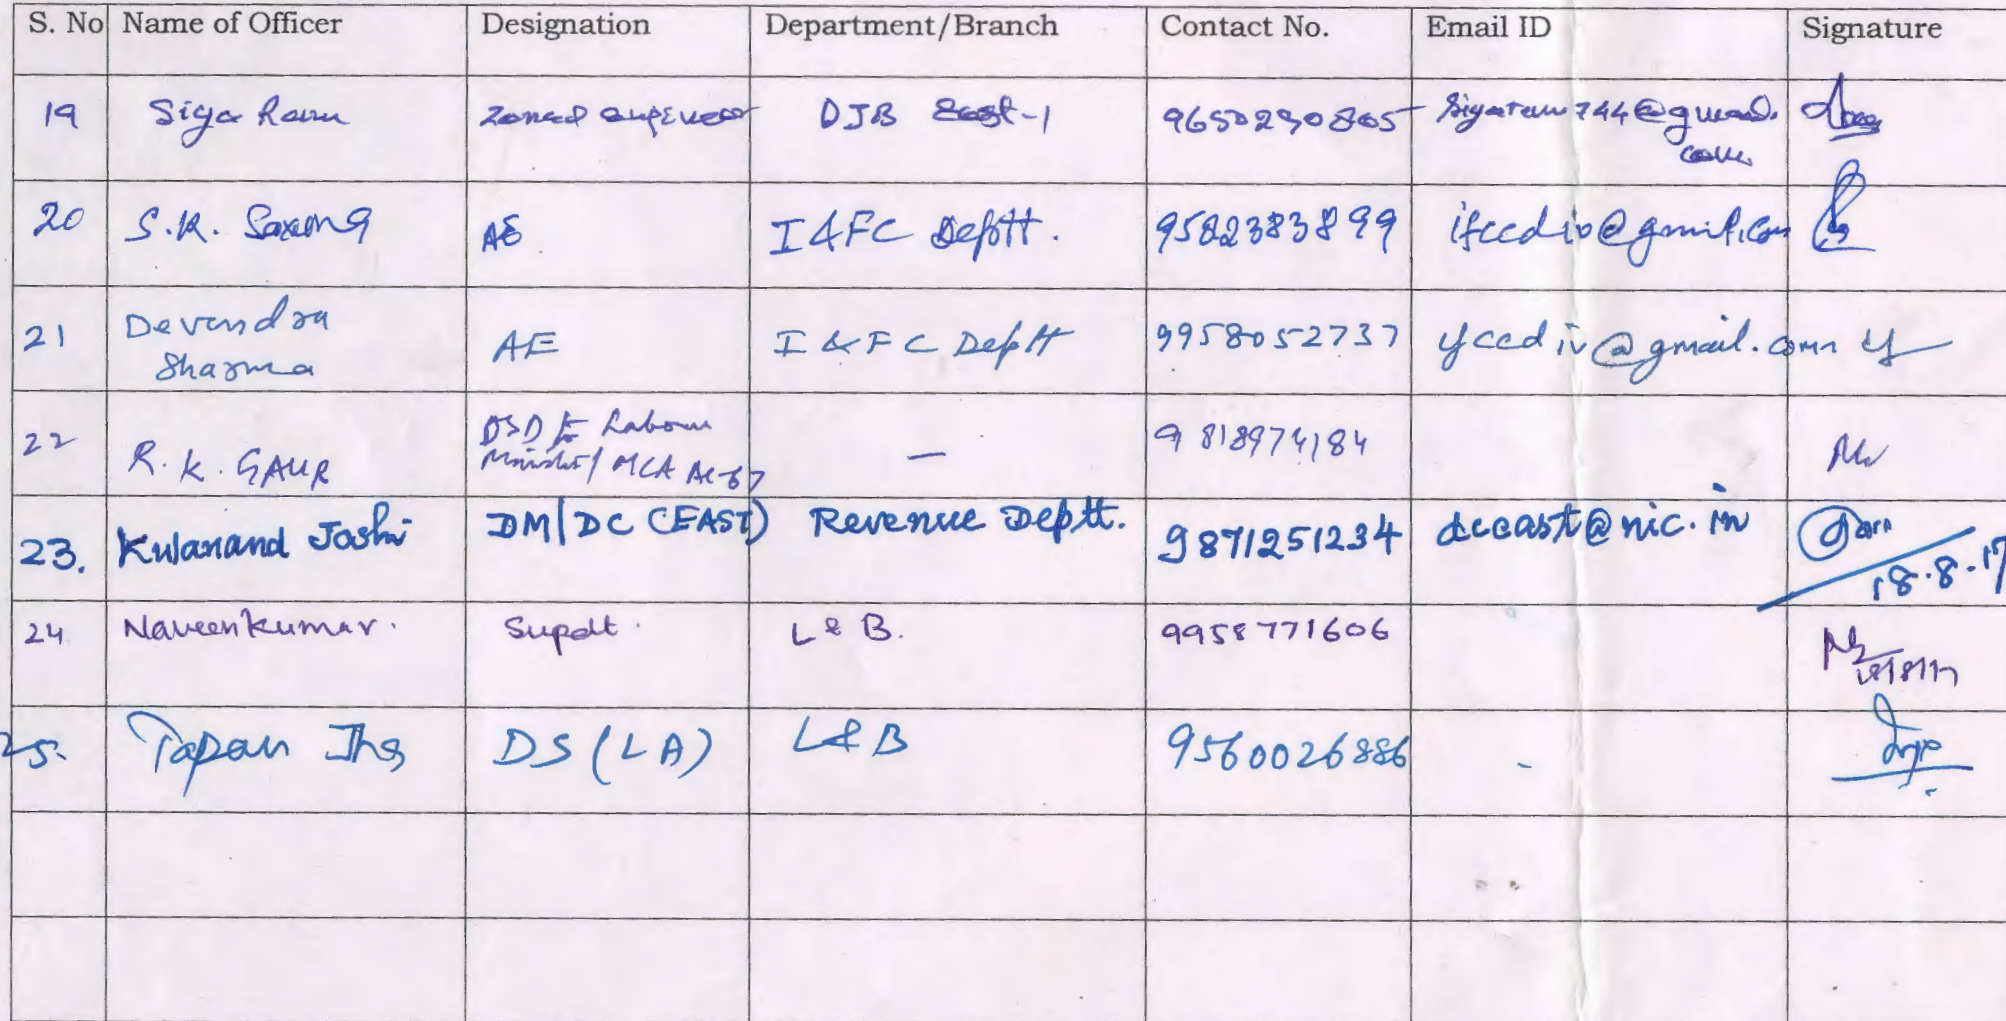 S. No Name of Officer Designation Department/Branch Contact No. Email ID Signature
19 Siya Ram Zonal engineer DJB East-1 9650290805 Siyaram744@gmail.
com
20 S.K. Saxena AE I&FC Deptt. 9582383899 ifccdiv@gmail.com
21 Devendra
Sharma AE I & FC Deptt 9958052737 ifccdiv@gmail.com
22 R. K. GAUR OSD to Labour
Minister/ MLA AC-67 — 9818974184
23. Kulanand Joshi DM/DC (EAST) Revenue Deptt. 9871251234 dceast@nic.in
18.8.17
24 Naveen Kumar. Supdt. L & B. 9958771606
18/8/17
25. Tapan Jha DS (LA) L&B 9560026886 -